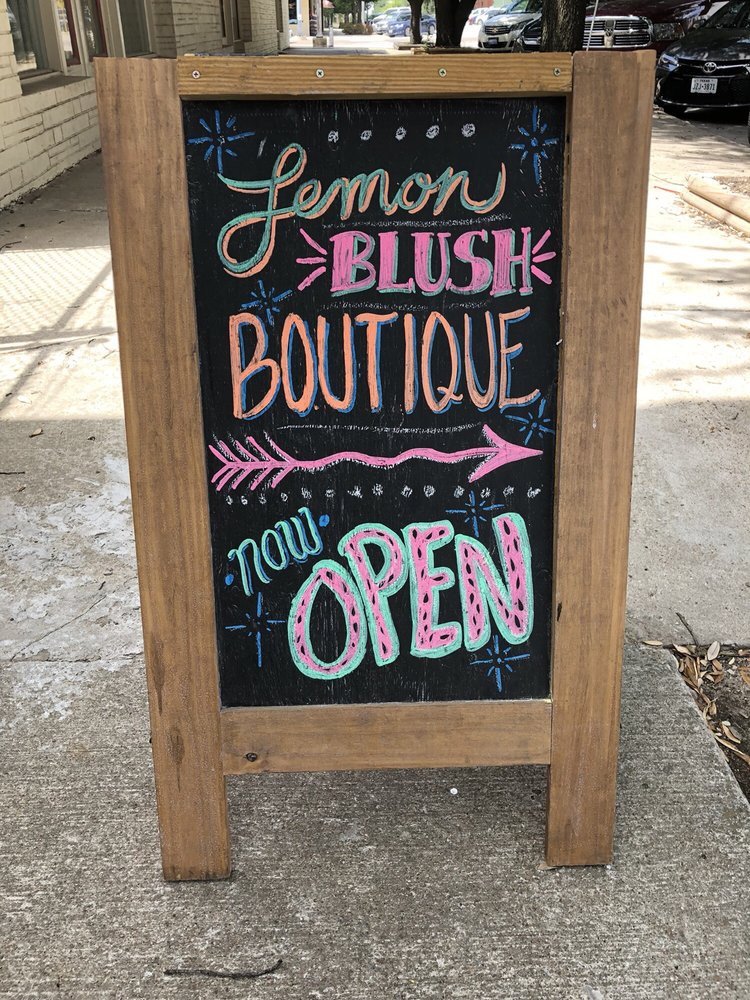 Lemon
BLUSH
BOUTIQUE
now
OPEN